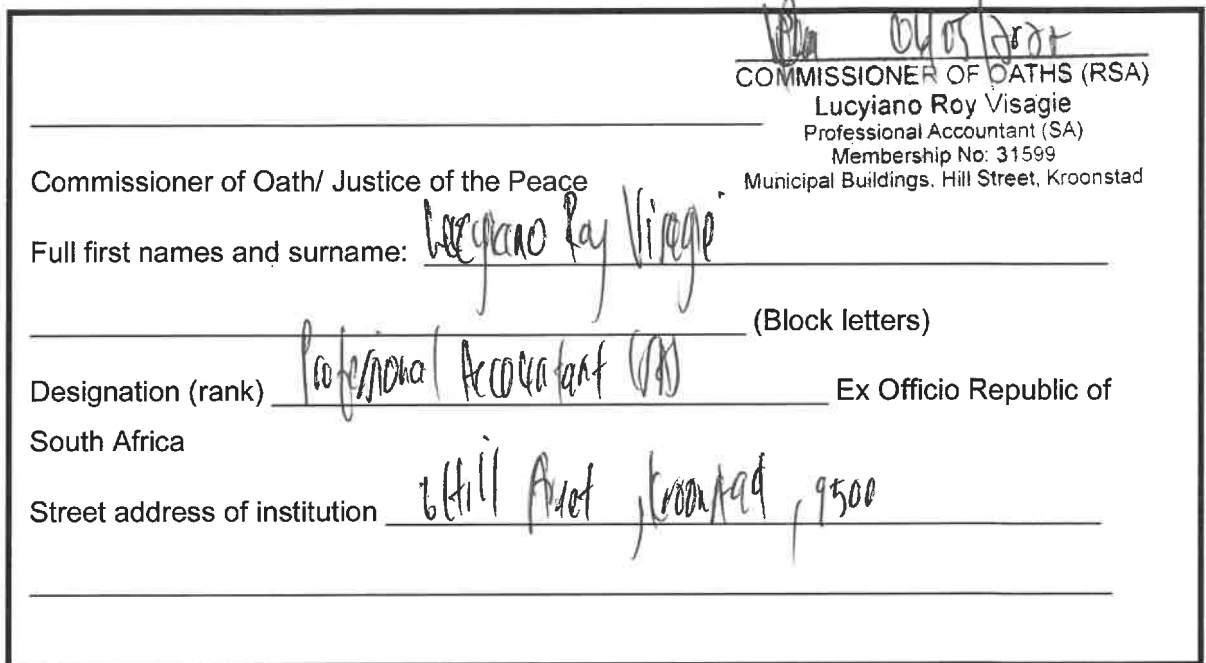 COMMISSIONER OF OATHS (RSA)
Lucyiano Roy Visagie
Professional Accountant (SA)
Membership No: 31599
Municipal Buildings, Hill Street, Kroonstad
Commissioner of Oath/ Justice of the Peace
Full first names and surname: Lucyiano Roy Visagie
(Block letters)
Designation (rank) Professional Accountant (SA) Ex Officio Republic of
South Africa
Street address of institution Hill Street, Kroonstad, 9500